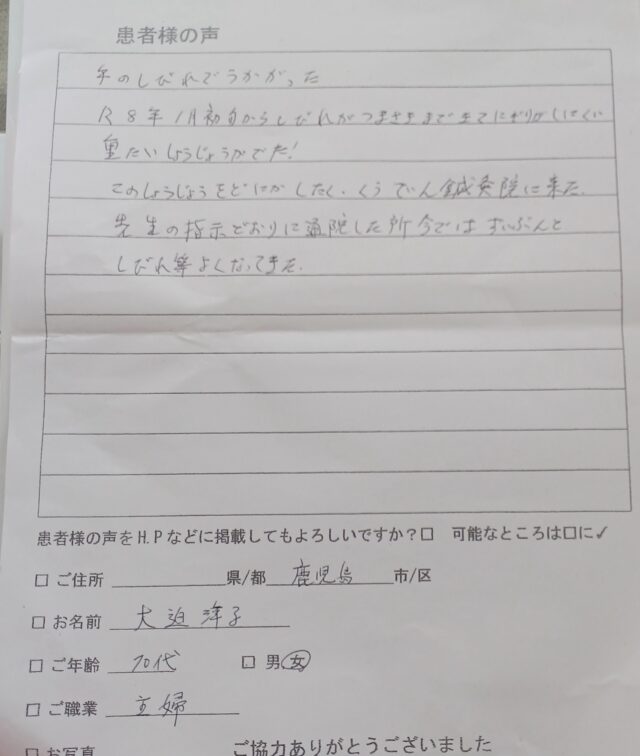 患者様の声
手のしびれでうかがった
R8年1月初旬からしびれがつまさきまできてにぎりがしにくい
重たいしょうじょうがでた!
このしょうじょうをどにかしたく、くうてん鍼灸院に来た.
先生の指示どおりに通院した所今ではずいぶんと
しびれ等よくなってきた.
患者様の声をH.Pなどに掲載してもよろしいですか?□ 可能なところは□に✓
□ ご住所 県/都 鹿児島 市/区
□ お名前 大迫洋子
□ ご年齢 70代 □ 男女
□ ご職業 主婦
□ お写真 ご協力ありがとうございました